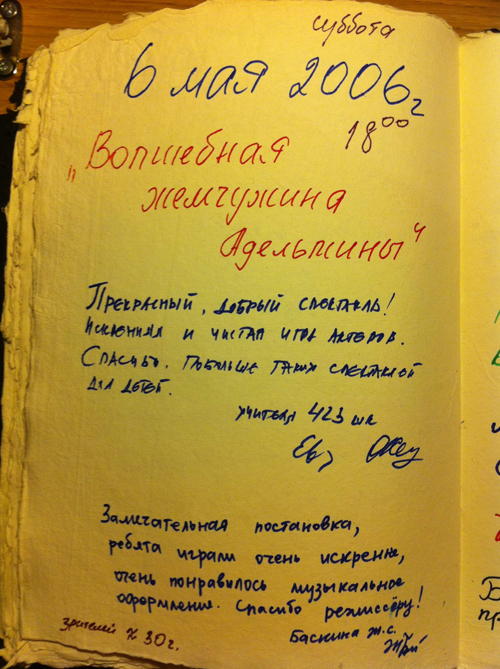 суббота
6 мая 2006г
18⁰⁰
"Волшебная
жемчужина
Адельмины"
Прекрасный, добрый спектакль!
Искренняя и чистая игра актёров.
Спасибо. Побольше таких спектаклей
для детей.
учителя 423 шк
Замечательная постановка,
ребята играли очень искренне,
очень понравилось музыкальное
оформление. Спасибо режиссёру!
Баскина Ж.С.
зрителей